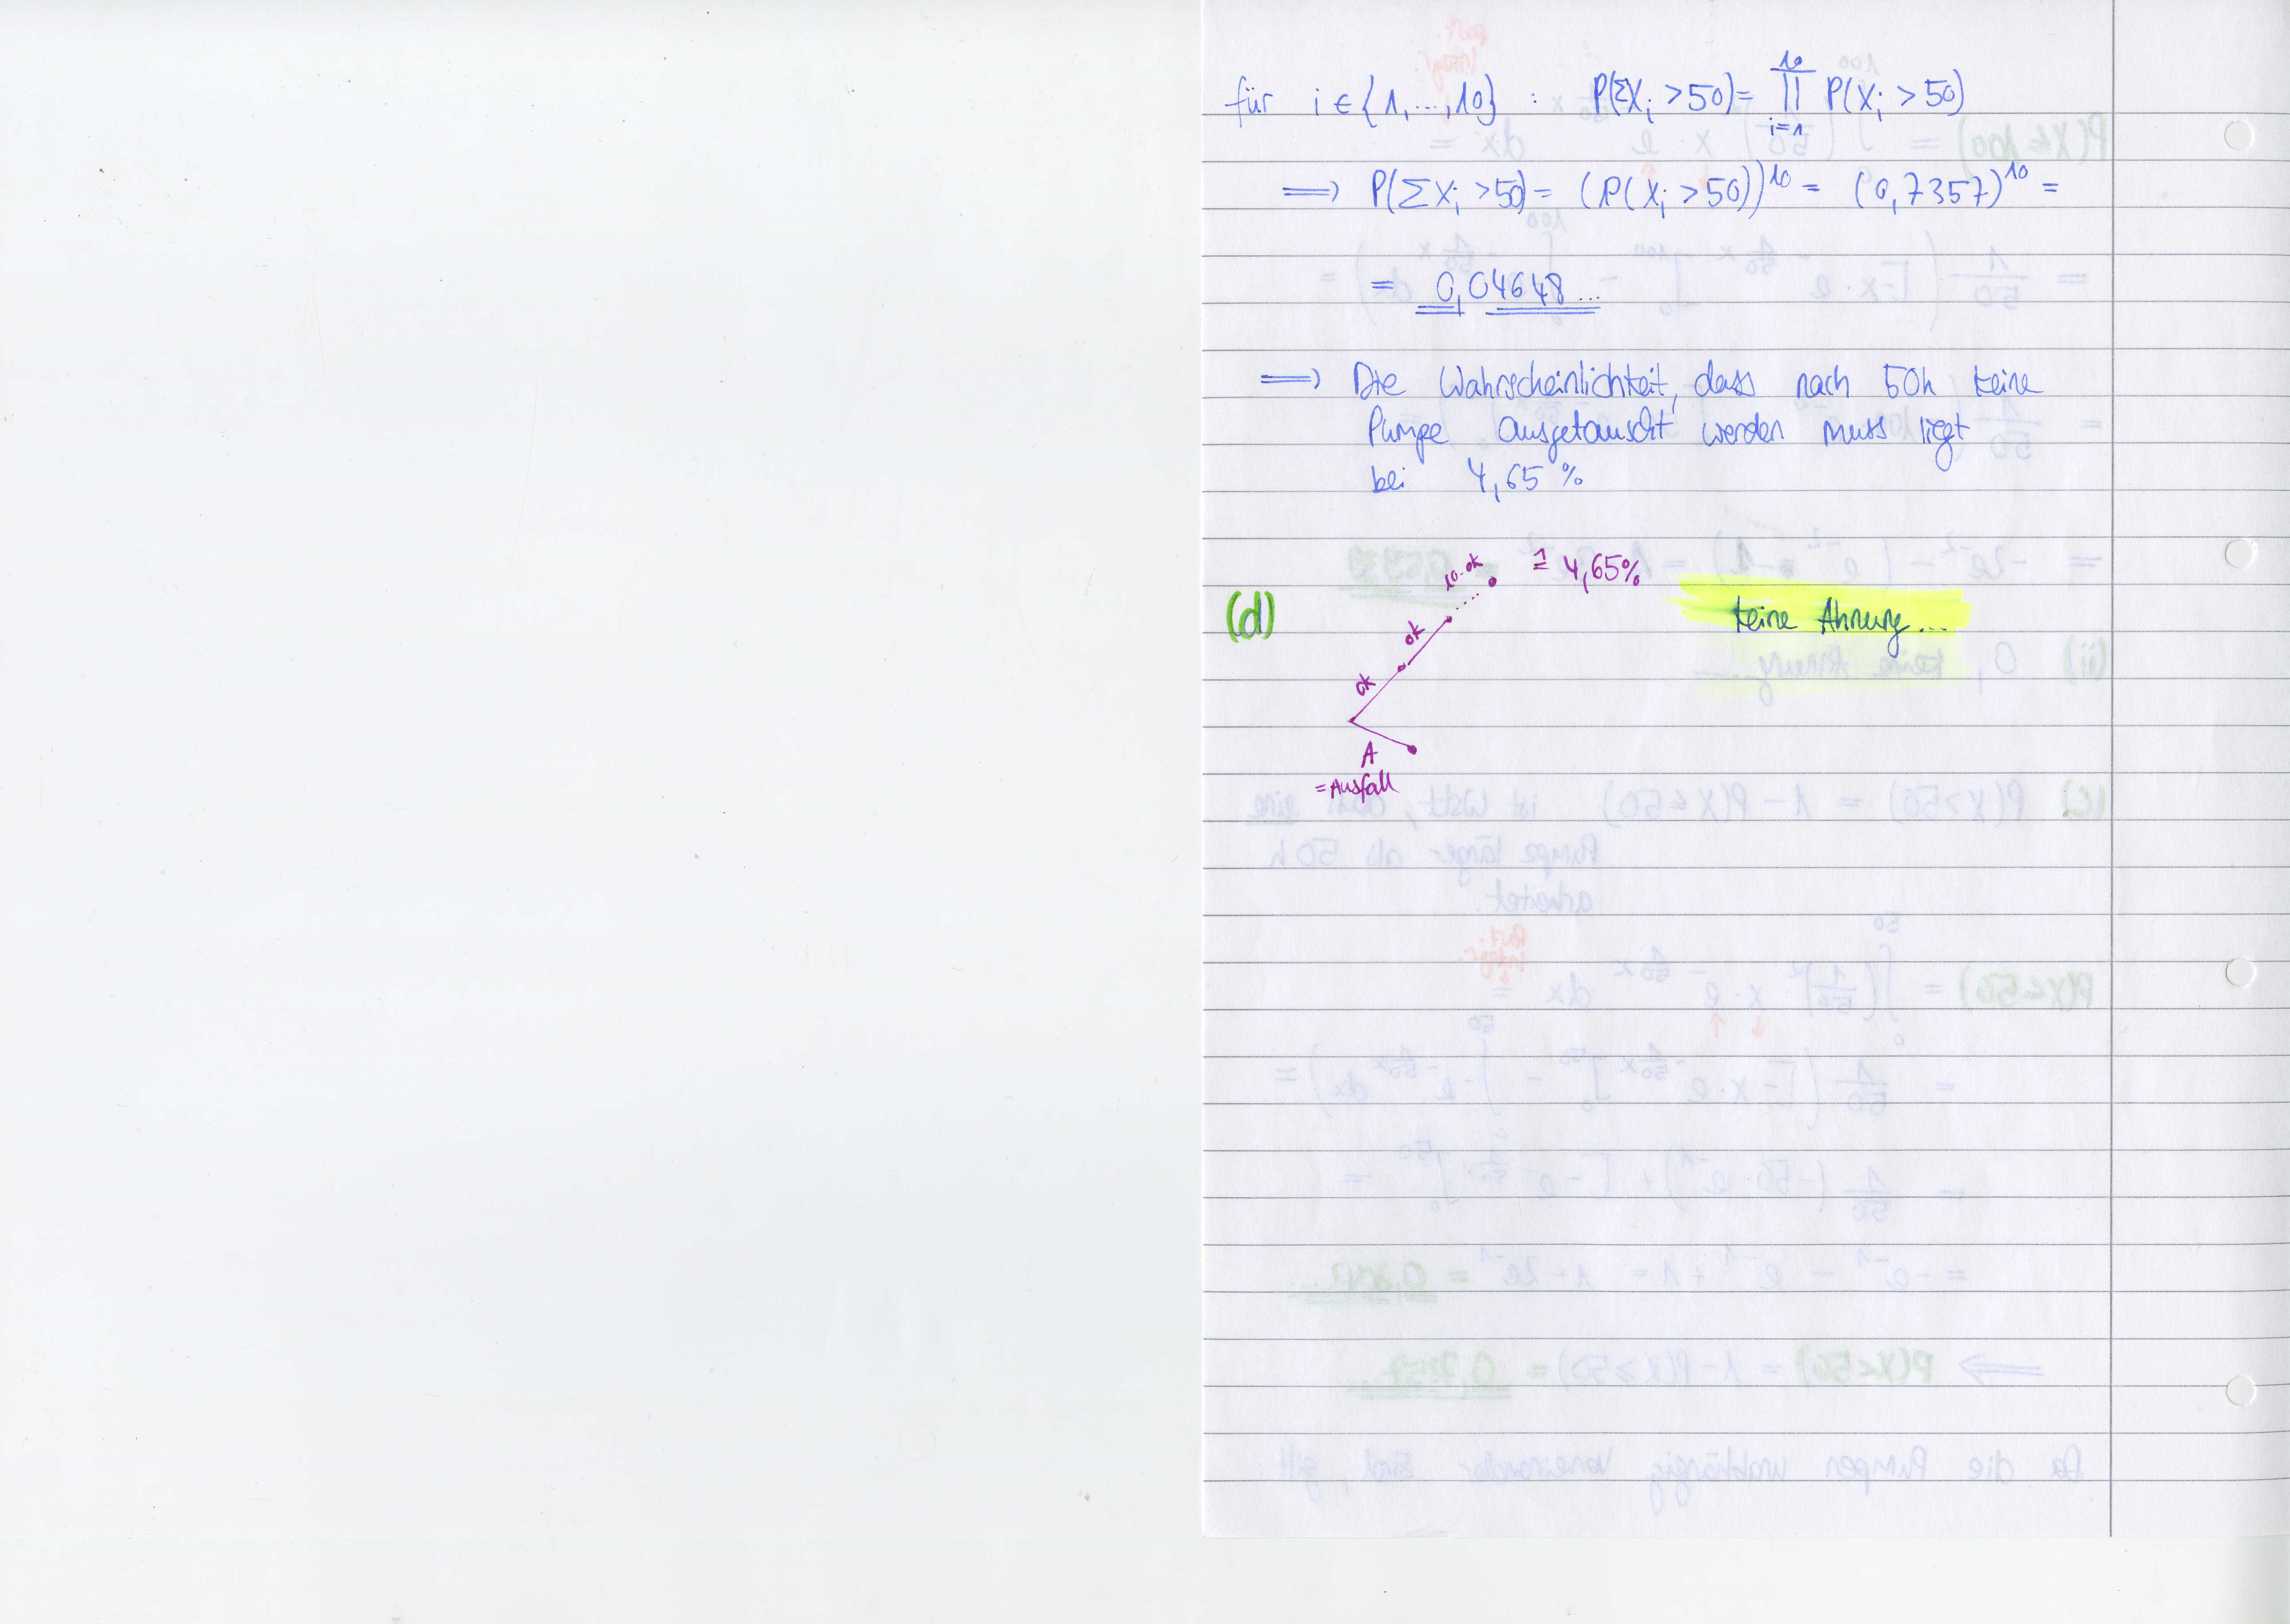 für i ∈ {1, ..., 10} : P(ΣXᵢ > 50) = ∏ᵢ₌₁¹⁰ P(Xᵢ > 50)
⟹ P(ΣXᵢ > 50) = (P(Xᵢ > 50))¹⁰ = (0,7357)¹⁰ =
= 0,04648...
⟹ Die Wahrscheinlichkeit, dass nach 50h keine
Pumpe ausgetauscht werden muss liegt
bei 4,65 %
(d)
10. ok ≙ 4,65%
keine Ahnung...
ok
ok
A
= Ausfall